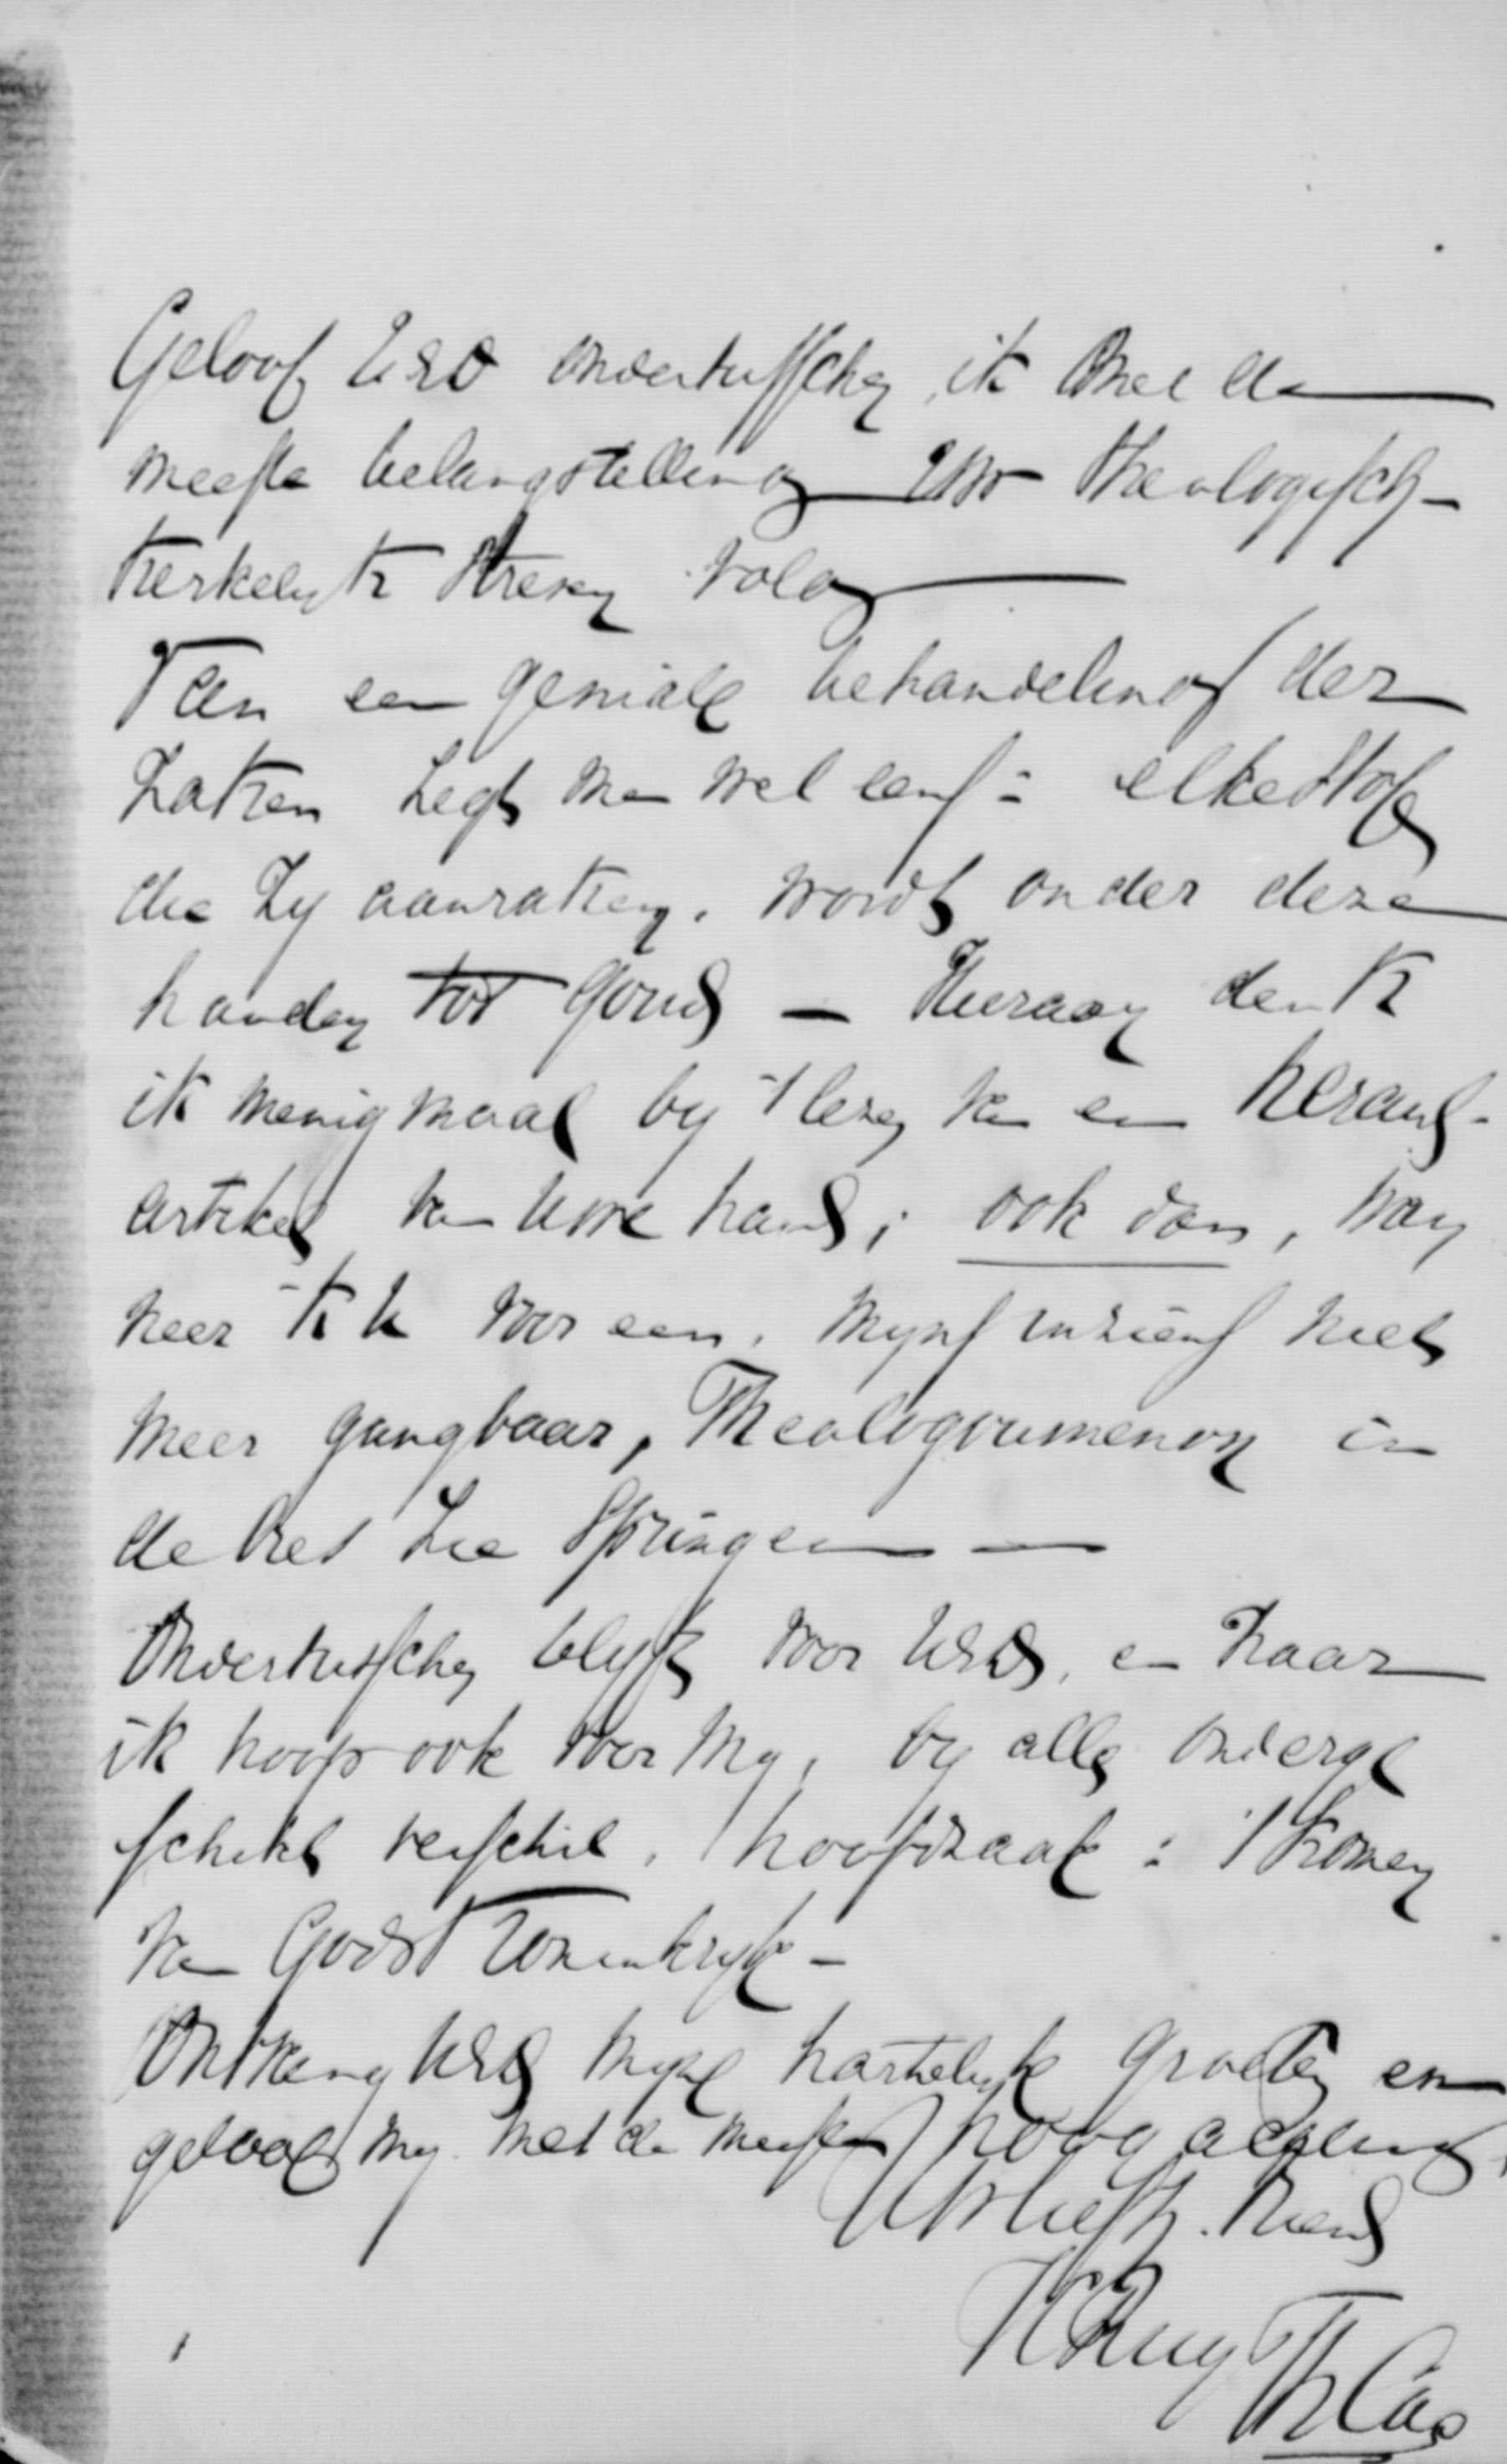 Geloof UEd ondertusschen, ik met de
meeste belangstelling Uw theologisch-
kerkelijk streven volg
Van een geniale behandeling der
zaken zegt men wel eens: elke stof
die zij aanraken, wordt onder deze
handen tot goud — Hieraan denk
ik menigmaal bij 't lezen van een Heraut-
artikel van Uwe hand; ook dan, wan
neer ik U voor een, mijns inziens niet
meer gangbaar, Theologoumenon in
de bres zie springen —
Ondertusschen blijft voor UEd, en naar
ik hoop ook voor mij, bij alle onderge
schikt verschil, hoofdzaak: 't komen
van Gods Koninkrijk —
Ontvang UEd mijne hartelijke groeten en
geloof mij met de meeste hoogachting,
Uw liefh. vriend